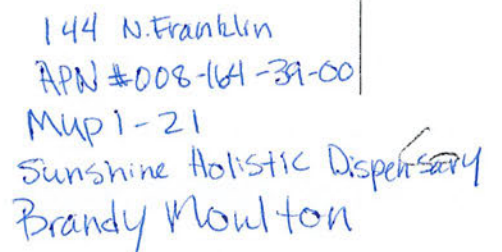 144 N. Franklin
APN #008-164-39-00
Mup 1-21
Sunshine Holistic Dispensary
Brandy Moulton